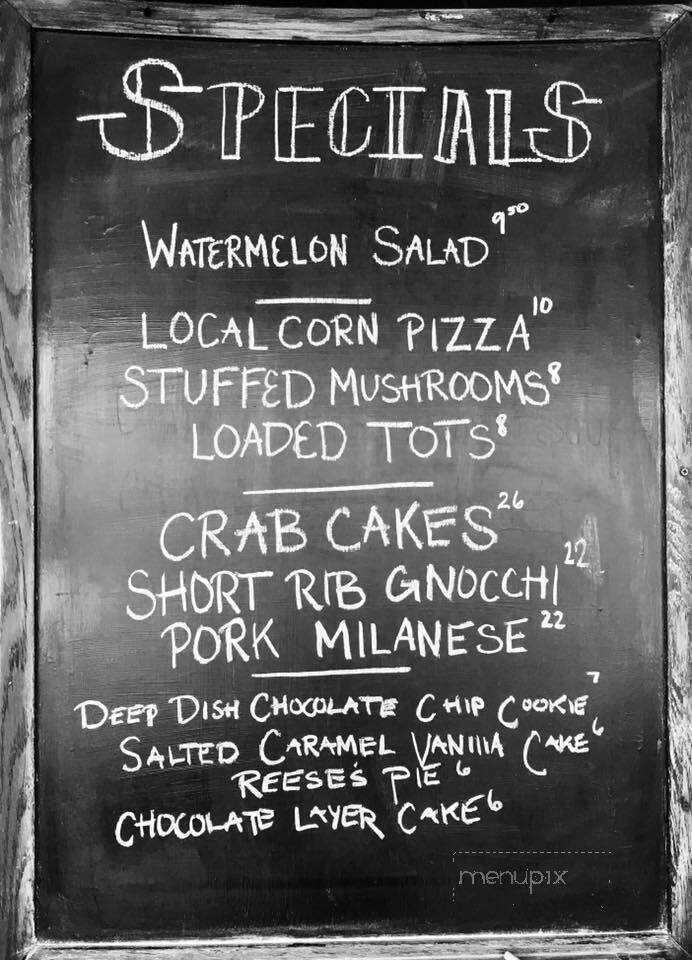 SPECIALS
WATERMELON SALAD 9.50
LOCAL CORN PIZZA 10
STUFFED MUSHROOMS 8
LOADED TOTS 8
CRAB CAKES 26
SHORT RIB GNOCCHI 22
PORK MILANESE 22
DEEP DISH CHOCOLATE CHIP COOKIE 7
SALTED CARAMEL VANILLA CAKE 6
REESE'S PIE 6
CHOCOLATE LAYER CAKE 6
menupix